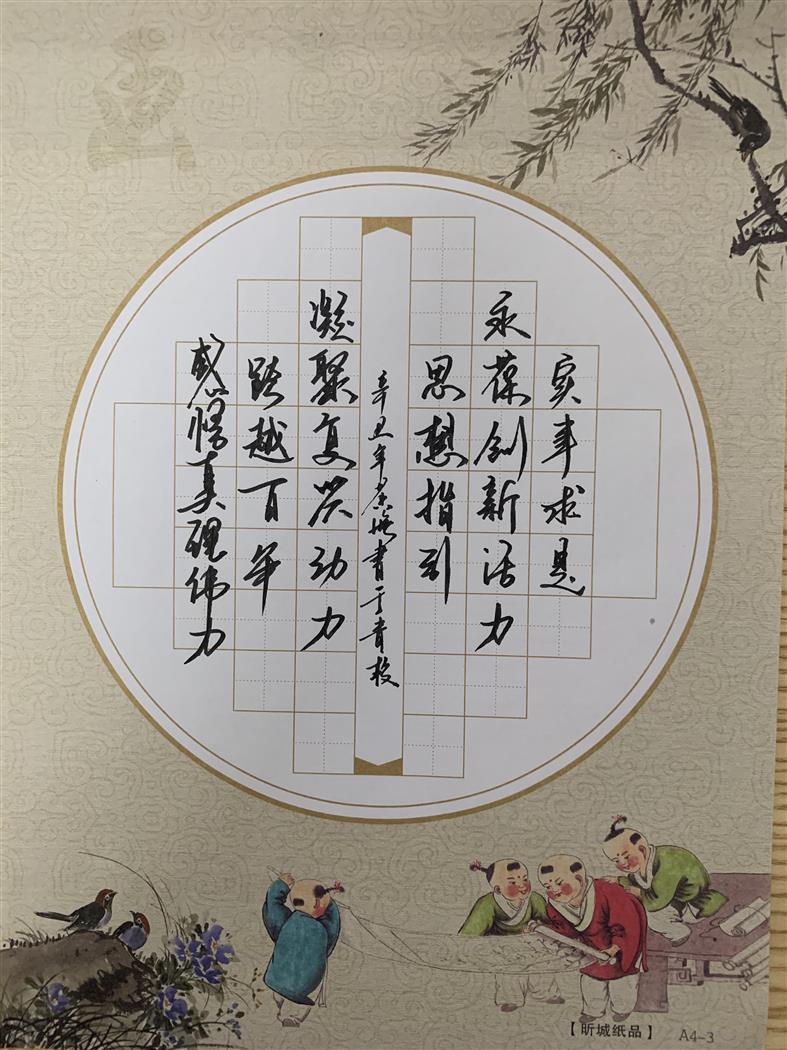 实事求是
永葆创新活力
思想指引
辛丑年書于青校
凝聚复兴动力
跨越百年
感悟真理伟力
【昕城纸品】 A4-3